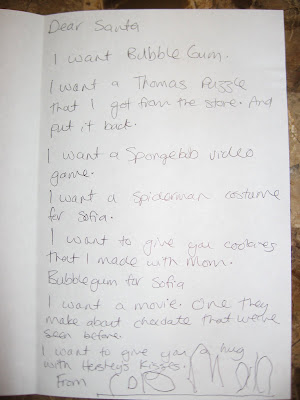 Dear Santa
I want Bubble Gum.
I want a Thomas Puzzle
that I got from the store. And
put it back.
I want a Spongebob video
game.
I want a Spiderman costume
for Sofia.
I want to give you cookies
that I made with Mom.
Bubblegum for Sofia
I want a movie. One they
make about chocolate that we've
seen before.
I want to give you a hug
with Hershey's Kisses.
From